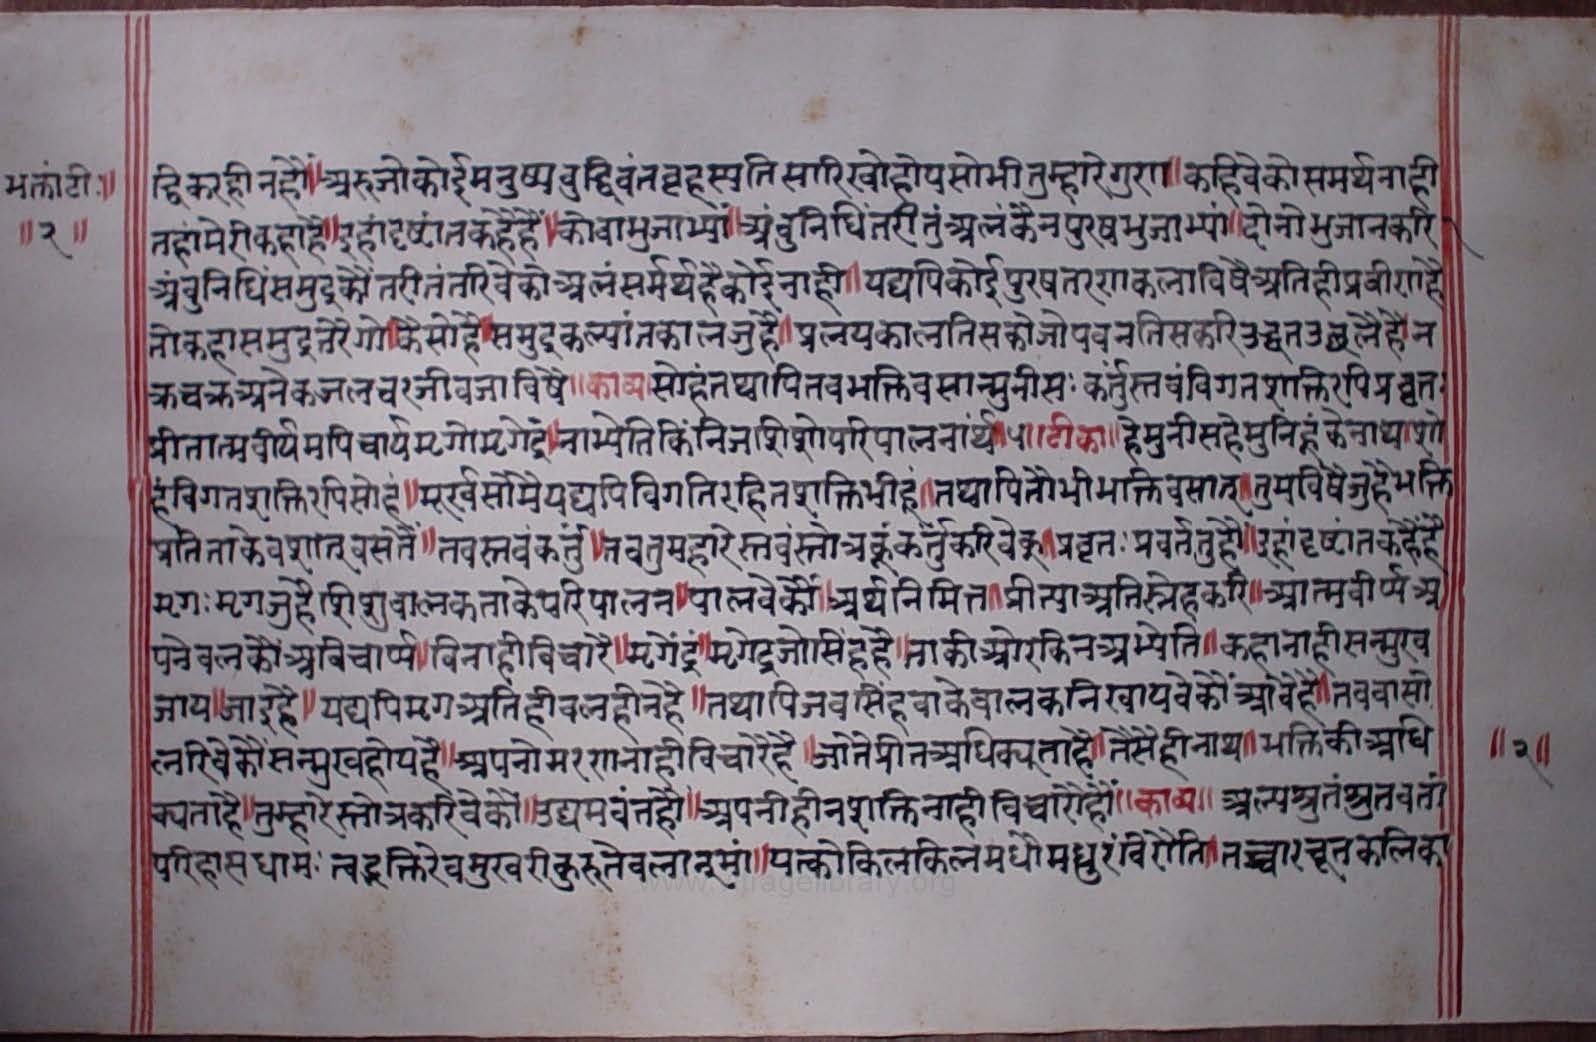 भक्तांटी॰॥
॥२॥
द्धि करही न हौं॥ अरु जो कोई मनुष्य वुद्धिवंत वृहस्पति सारिखो होय सो भी तुम्हारे गुण॥ कहिवे को समर्थ नाही
तहां मेरी कहा है॥ इहां दृष्टांत कहै हैं॥ को वा भुजाभ्यां॥ अंवुनिधिं तरीतुं अलं कै न पुरुष भुजाभ्यां॥ दोनो भुजान करि
अंवुनिधिं समुद्र कौं तरीतं तरिवे को अलं सर्मर्थ है कोई नाही॥ यद्यपि कोई पुरुष तरण कला विषै अति ही प्रवीण है
तो कहा समुद्र तैरेगो॥ कैसो है॥ समुद्र कल्पांतकाल जु है॥ प्रलयकाल तिस को जो पवन तिस करि उद्धत उछलै है॥ न
क्रचक्र अनेक जलचर जीव जा विषै॥ काव्य सोहं तथापि तव भक्ति वसान्मुनीसः कर्तुं स्तवं विगतशक्तिरपि प्रवृतः
प्रीतात्मवीर्यमपिचार्य मृगो मृगेंद्रं॥ नाभ्येति किं निजशिशो परिपालनार्थं ५॥ टीका॥ हे मुनीस हे मुनिहूं के नाथ॥ शो
हं विगतशक्तिरपि सोहं॥ मूर्ख सो मै यद्यपि विगति रहित शक्ति भी हूं॥ तथापि तौ भी भक्तिवसात्॥ तुम विषै जु है भक्ति
प्रति ता के वशात् वसे तें॥ तव स्तवं कर्तुं॥ तव तुमहारे स्तवं स्तोत्र कूं कर्तुं करिवे कू॥ प्रवृतः प्रवर्ततु हौ॥ इहां दृष्टांत कहै हैं
मृगः मृग जु है शिशु वालक ता के परिपालन॥ पालवे कौं॥ अर्थ निमित्त॥ प्रीत्या अति स्नेह करि॥ आत्मवीर्य्य अ
पने वल कौं अविचार्य्य॥ विना ही विचारै॥ मृगेंद्रं॥ मृगेंद्र जो सिंह है॥ ता की ओर कि न अभ्येति॥ कहा नाही सन्मुख
जाय॥ जाइ है॥ यद्यपि मृग अति ही वलहीन है॥ तथापि जव सिंह वा के वालकनि खायवे कौं आवै है॥ तव वा सो
लरिवे कौं सन्मुख होय है॥ अपनो मरण नाही विचारै है॥ जो ते प्रीत अधिक्यता है॥ तैसै ही नाथ॥ भक्ति की अधि
क्यता है॥ तुम्हारे स्तोत्र करिवे कौं॥ उद्यमवंत हौ॥ अपनी हीन शक्ति नाही विचारौ हौं॥ काव्य॥ अल्पश्रुतं श्रुतवतां
परिहासधामः त्वद्भक्तिरेव मुखरीकुरुते वलात्मां॥ यत्कोकिल किल मधौ मधुरं विरौति॥ तच्चारचूतकलिका
॥२॥